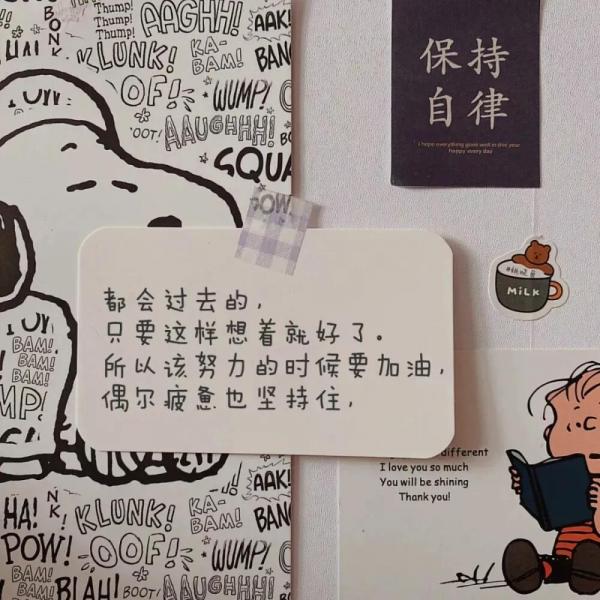 BONK
Thump!
Thump!
Thump!
AAGHH!
AAK!
HA!
KLUNK!
KA-
BAM!
BANG
OOF!
WUMP!
AAK!
BOOT!
AAUGHHH!
SQUA
POW!
保持
自律
I hope everything goes well in the year
happy every day
都会过去的，
只要这样想着就好了。
所以该努力的时候要加油，
偶尔疲惫也坚持住，
MiLK
BAM!
BAM!
BAM!
different
I love you so much
You will be shining
Thank you!
AAK!
HA!
KLUNK!
KA-
BAM!
BANG
POW!
OOF!
WUMP!
BAM!
BAM!
BLAH!
BOOT!
AAUGHHH!